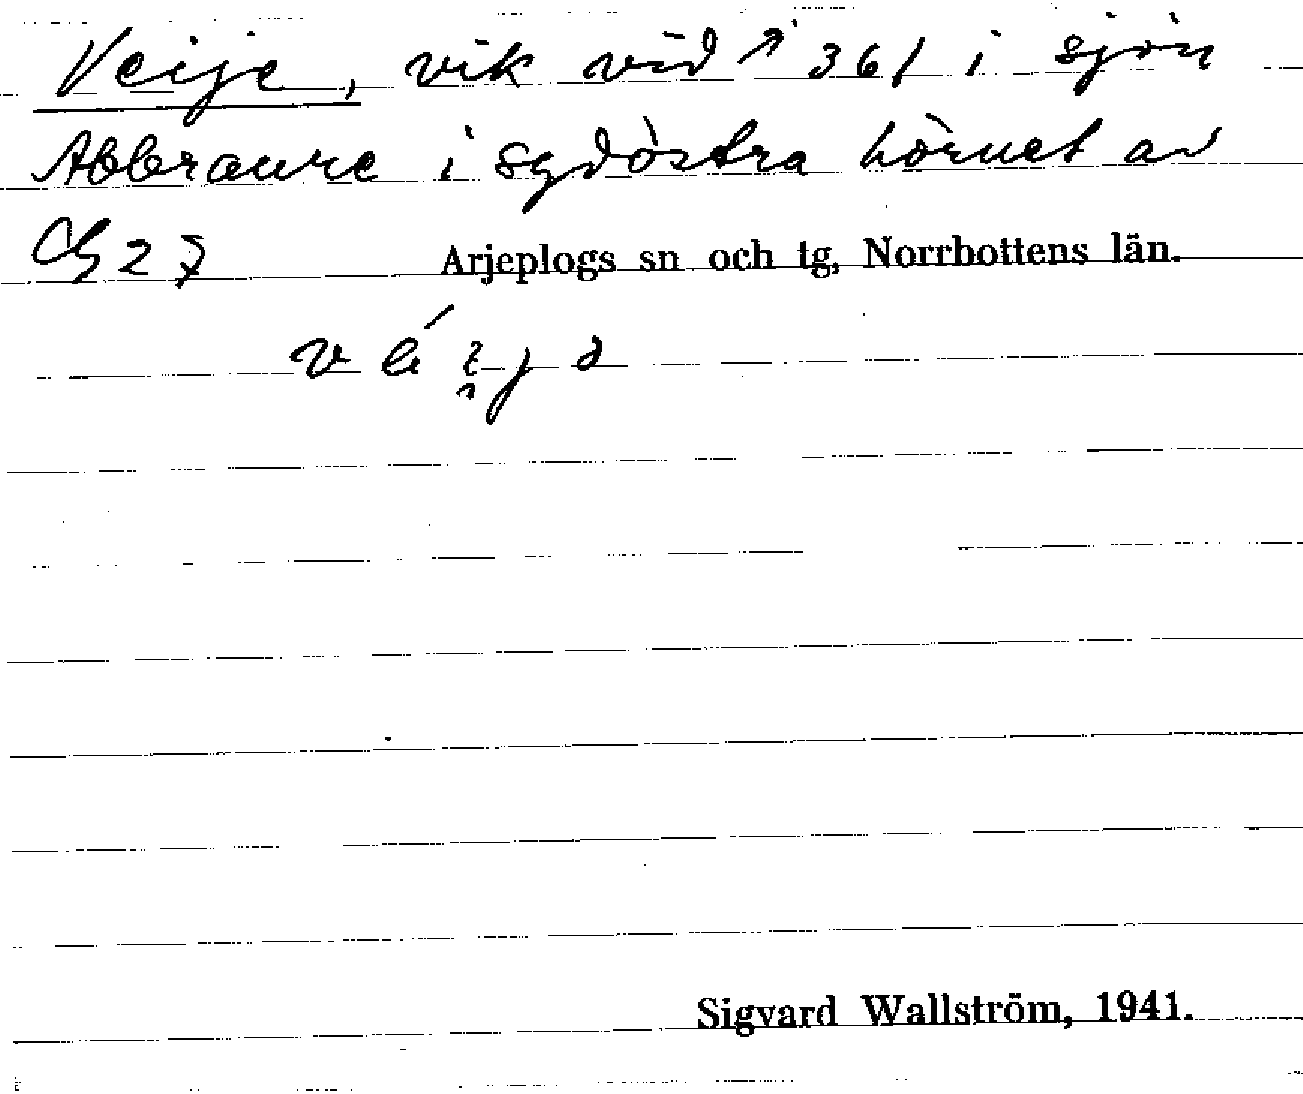 Veije, vik vid 361 i sjön
Abbraure i sydöstra hörnet av
27 Arjeplogs sn och tg, Norrbottens län.
Sigvard Wallström, 1941.